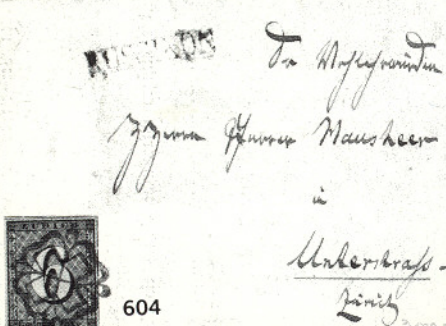 Sr Wohlehrwürden
Herrn Pfarrer Mausheer
in
Unterstrass
Zürich
6
604